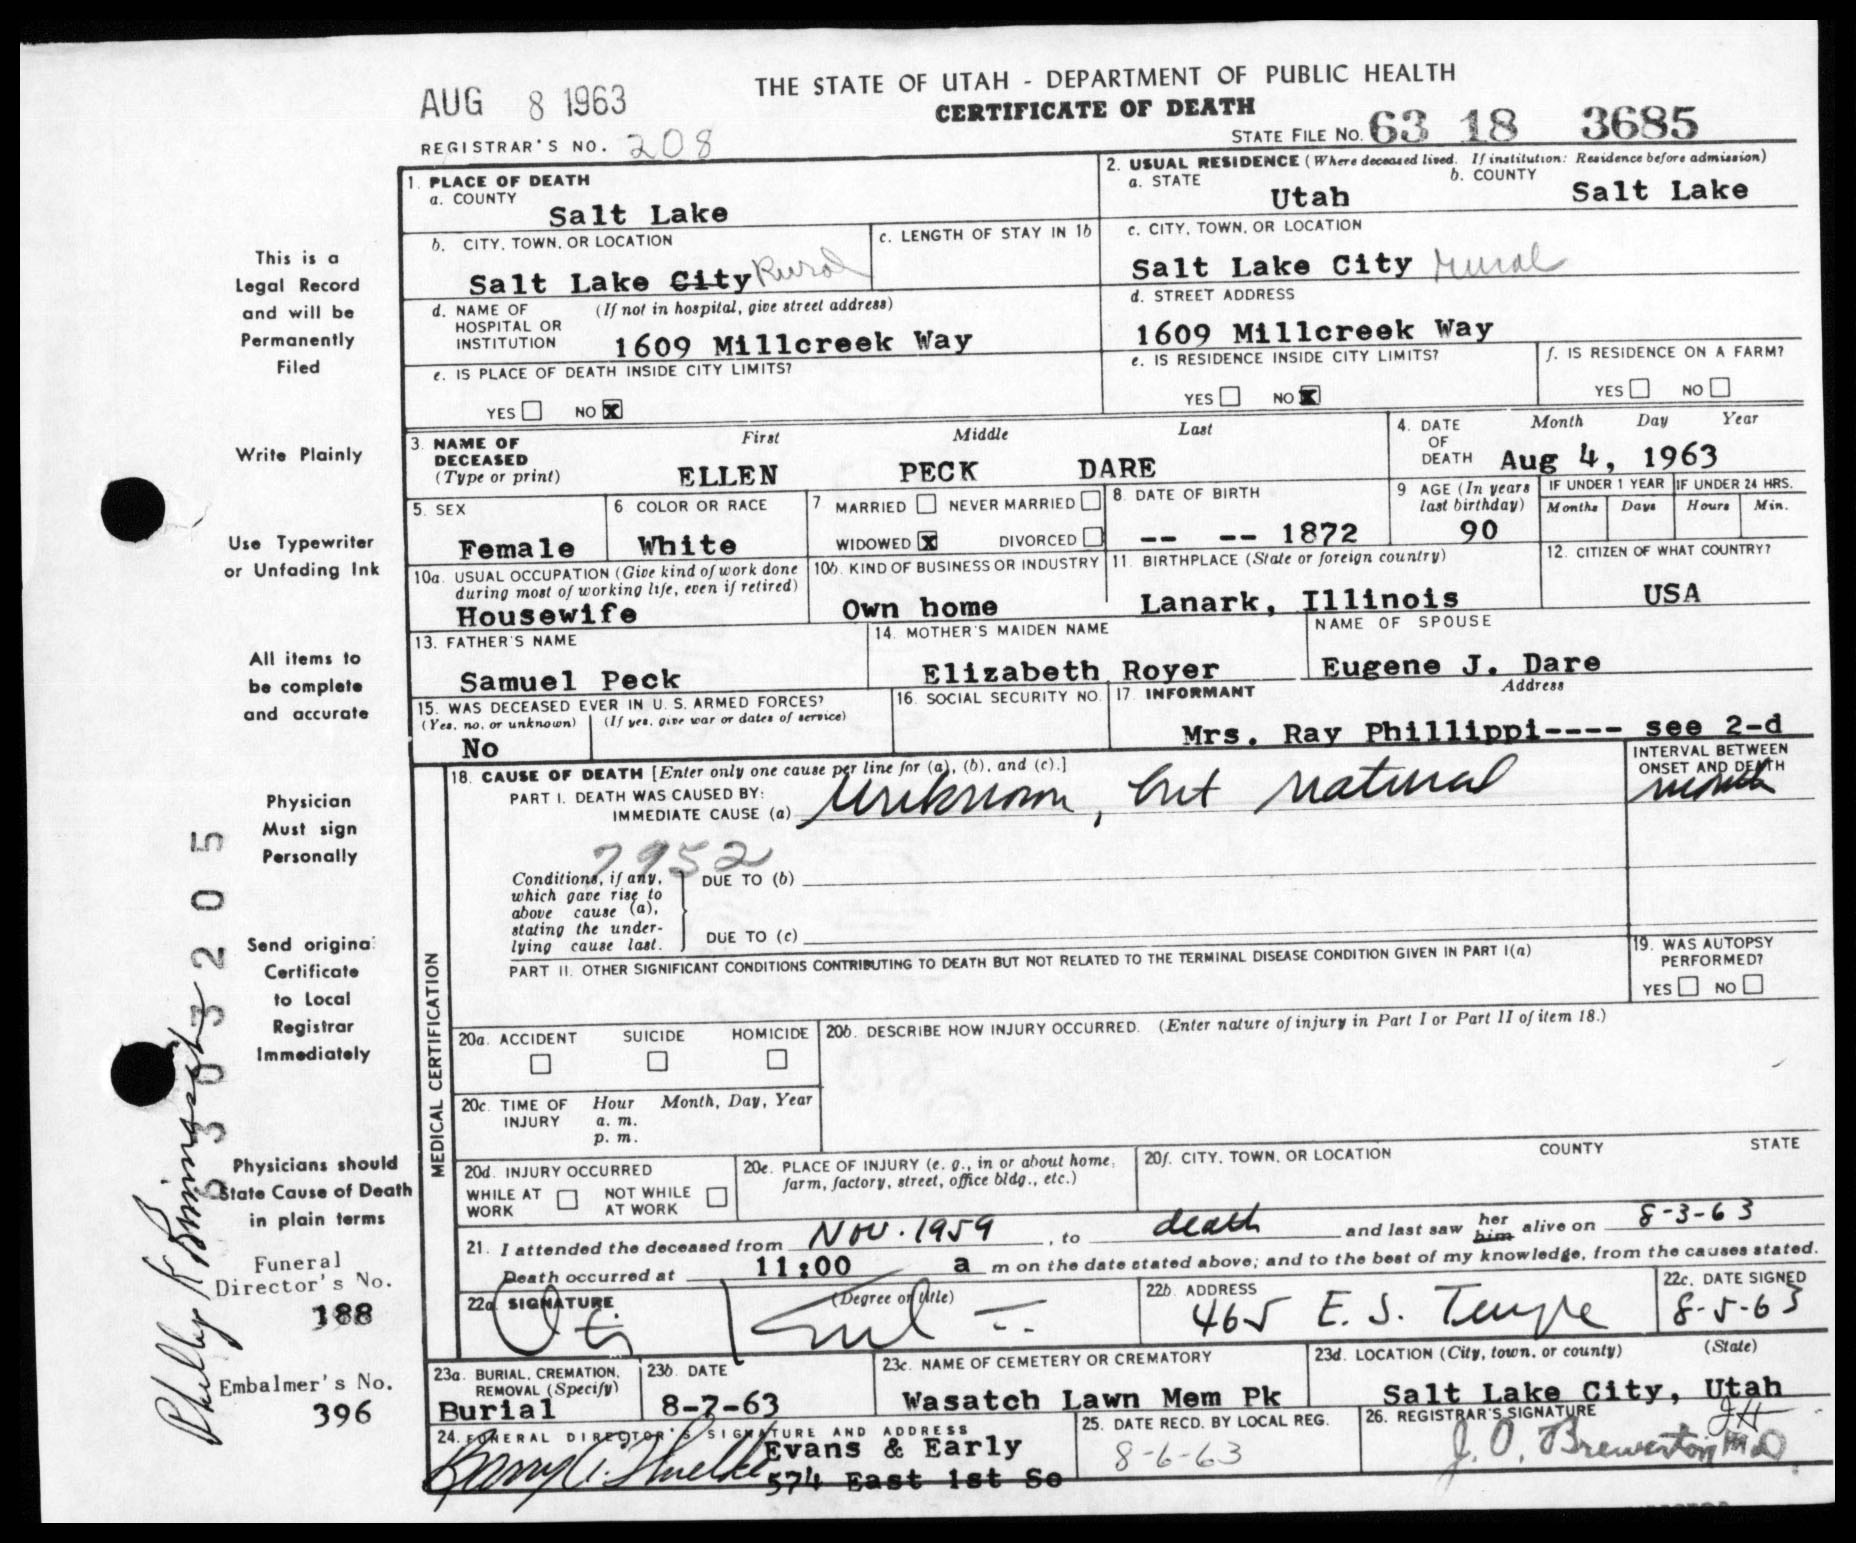 THE STATE OF UTAH - DEPARTMENT OF PUBLIC HEALTH
AUG 8 1963
CERTIFICATE OF DEATH
REGISTRAR'S NO. 208
STATE FILE NO. 63 18 3685
1. PLACE OF DEATH
a. COUNTY
Salt Lake
2. USUAL RESIDENCE (Where deceased lived. If institution: Residence before admission)
a. STATE
Utah
b. COUNTY
Salt Lake
b. CITY, TOWN, OR LOCATION
Salt Lake City Rural
c. LENGTH OF STAY IN 1b
c. CITY, TOWN, OR LOCATION
Salt Lake City rural
d. NAME OF HOSPITAL OR INSTITUTION
(If not in hospital, give street address)
1609 Millcreek Way
d. STREET ADDRESS
1609 Millcreek Way
e. IS PLACE OF DEATH INSIDE CITY LIMITS?
YES NO X
e. IS RESIDENCE INSIDE CITY LIMITS?
YES NO X
f. IS RESIDENCE ON A FARM?
YES NO
3. NAME OF DECEASED
(Type or print)
First Middle Last
ELLEN PECK DARE
4. DATE OF DEATH
Month Day Year
Aug 4, 1963
5. SEX
Female
6 COLOR OR RACE
White
7 MARRIED NEVER MARRIED
WIDOWED X DIVORCED
8. DATE OF BIRTH
-- -- 1872
9 AGE (In years last birthday)
90
IF UNDER 1 YEAR
Months Days
IF UNDER 24 HRS.
Hours Min.
10a. USUAL OCCUPATION (Give kind of work done during most of working life, even if retired)
Housewife
10b. KIND OF BUSINESS OR INDUSTRY
Own home
11. BIRTHPLACE (State or foreign country)
Lanark, Illinois
12. CITIZEN OF WHAT COUNTRY?
USA
13. FATHER'S NAME
Samuel Peck
14. MOTHER'S MAIDEN NAME
Elizabeth Royer
NAME OF SPOUSE
Eugene J. Dare
15. WAS DECEASED EVER IN U. S. ARMED FORCES?
(Yes, no, or unknown) (If yes, give war or dates of service)
No
16. SOCIAL SECURITY NO.
17. INFORMANT Address
Mrs. Ray Phillippi---- see 2-d
MEDICAL CERTIFICATION
18. CAUSE OF DEATH [Enter only one cause per line for (a), (b), and (c).]
PART I. DEATH WAS CAUSED BY:
IMMEDIATE CAUSE (a) Unknown, but natural
INTERVAL BETWEEN ONSET AND DEATH
month
7952
Conditions, if any, which gave rise to above cause (a), stating the underlying cause last.
DUE TO (b)
DUE TO (c)
PART II. OTHER SIGNIFICANT CONDITIONS CONTRIBUTING TO DEATH BUT NOT RELATED TO THE TERMINAL DISEASE CONDITION GIVEN IN PART I(a)
19. WAS AUTOPSY PERFORMED?
YES NO
20a. ACCIDENT SUICIDE HOMICIDE
20b. DESCRIBE HOW INJURY OCCURRED. (Enter nature of injury in Part I or Part II of item 18.)
20c. TIME OF INJURY
Hour Month, Day, Year
a. m.
p. m.
20d. INJURY OCCURRED
WHILE AT WORK NOT WHILE AT WORK
20e. PLACE OF INJURY (e. g., in or about home, farm, factory, street, office bldg., etc.)
20f. CITY, TOWN, OR LOCATION COUNTY STATE
21. I attended the deceased from Nov. 1959, to death and last saw her him alive on 8-3-63
Death occurred at 11:00 a m on the date stated above; and to the best of my knowledge, from the causes stated.
22a. SIGNATURE (Degree or title)
22b. ADDRESS
465 E. S. Temple
22c. DATE SIGNED
8-5-63
23a. BURIAL, CREMATION, REMOVAL (Specify)
Burial
23b. DATE
8-7-63
23c. NAME OF CEMETERY OR CREMATORY
Wasatch Lawn Mem Pk
23d. LOCATION (City, town, or county) (State)
Salt Lake City, Utah
24. FUNERAL DIRECTOR'S SIGNATURE AND ADDRESS
Evans & Early
574 East 1st So
25. DATE RECD. BY LOCAL REG.
8-6-63
26. REGISTRAR'S SIGNATURE
J. O. Brewerton M D
JH
This is a
Legal Record
and will be
Permanently
Filed
Write Plainly
Use Typewriter
or Unfading Ink
All items to
be complete
and accurate
Physician
Must sign
Personally
Send original
Certificate
to Local
Registrar
Immediately
Physicians should
State Cause of Death
in plain terms
Funeral
Director's No.
188
Embalmer's No.
396